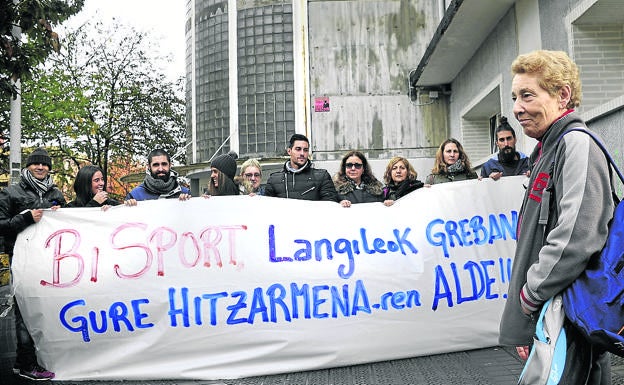 Bi SPORT Langileok GREBAN
Gure HITZARMENA-ren ALDE!!